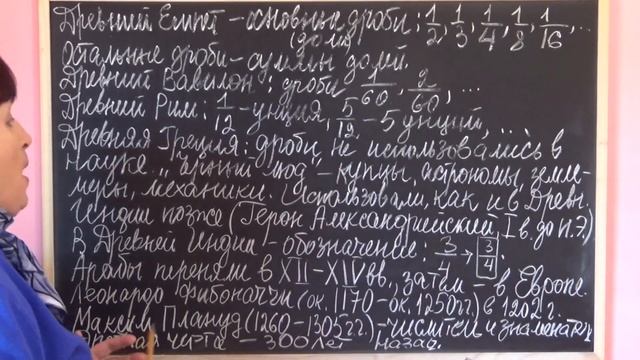 Древний Египет – основные дроби: 1/2, 1/3, 1/4, 1/8, 1/16, ...
(доли)
Остальные дроби – суммы долей.
Древний Вавилон: дроби 1/60, 2/60, ...
Древний Рим: 1/12 – унция, 5/12 – 5 унций, ...
Древняя Греция: дроби не использовались в
науке. „Чёрный люд" – купцы, астрономы, земле-
меры, механики. Использовали, как и в Древн.
Индии позже (Герон Александрийский I в. до н.э.)
В Древней Индии – обозначение: 3/4 → 3 4.
Арабы переняли в XII–XIV вв., затем – в Европе.
Леонардо Фибоначчи (ок. 1170 – ок. 1250 гг.) в 1202 г.
Максим Плануд (1260 – 1305 гг.) – числитель и знаменатель
черта – 300 лет назад.